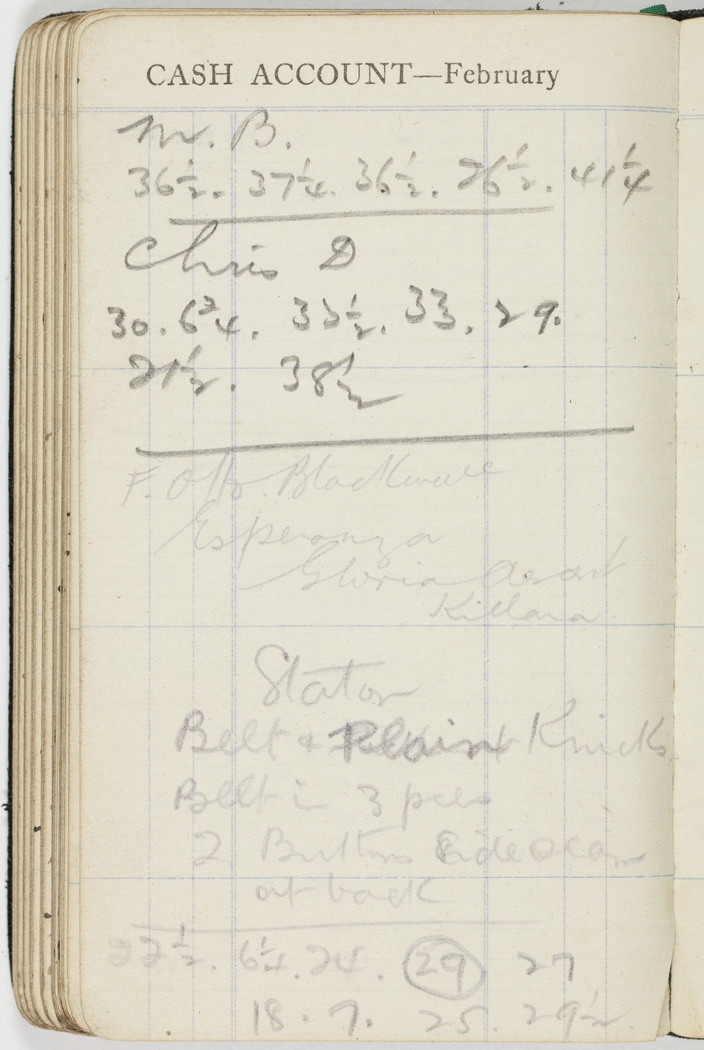 CASH ACCOUNT—February
M. B.
36½. 37¼. 36½. 26½. 41¼
Chris D
30. 6¾. 33½. 33. 29.
21½. 38½
F. Otto
Esperanza
Gloria
Killara
Belt & Plain Knicks
Belt in 3 pces
2 Buttons side seam
at back
22½. 6¼. 24. 29 27
18. 7. 25. 29½